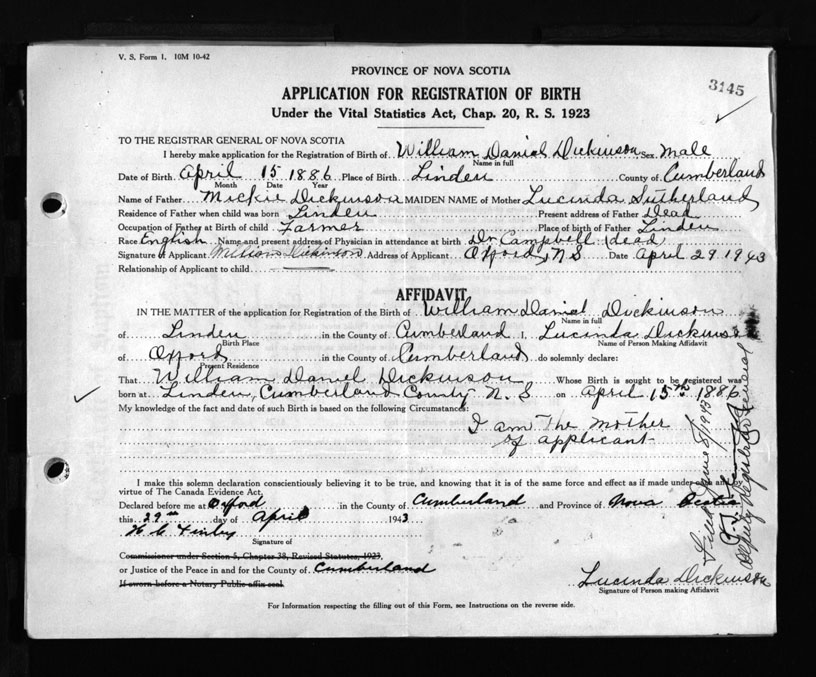 V. S. Form 1. 10M 10-42
PROVINCE OF NOVA SCOTIA
3145
APPLICATION FOR REGISTRATION OF BIRTH
Under the Vital Statistics Act, Chap. 20, R. S. 1923
TO THE REGISTRAR GENERAL OF NOVA SCOTIA
I hereby make application for the Registration of Birth of William Daniel Dickinson Sex Male
Name in full
Date of Birth April 15 1886 Place of Birth Linden County of Cumberland
Month Date Year
Name of Father Mickie Dickinson MAIDEN NAME of Mother Lucinda Sutherland
Residence of Father when child was born Linden Present address of Father Dead
Occupation of Father at Birth of child Farmer Place of birth of Father Linden
Race English Name and present address of Physician in attendance at birth Dr Campbell (dead
Signature of Applicant William Dickinson Address of Applicant Oxford, N S Date April 29 1943
Relationship of Applicant to child
AFFIDAVIT
IN THE MATTER of the application for Registration of the Birth of William Daniel Dickinson
Name in full
of Linden in the County of Cumberland I, Lucinda Dickinson
Birth Place Name of Person Making Affidavit
of Oxford in the County of Cumberland do solemnly declare:
Present Residence
That William Daniel Dickinson Whose Birth is sought to be registered was
born at Linden, Cumberland County N. S on April 15th 1886
My knowledge of the fact and date of such Birth is based on the following Circumstances:
I am the mother
of applicant
I make this solemn declaration conscientiously believing it to be true, and knowing that it is of the same force and effect as if made under oath and by
virtue of The Canada Evidence Act,
Declared before me at Oxford in the County of Cumberland and Province of Nova Scotia
this 29th day of April 1943
Signature of
Commissioner under Section 5, Chapter 38, Revised Statutes, 1923,
or Justice of the Peace in and for the County of Cumberland
If sworn before a Notary Public affix seal
Lucinda Dickinson
Signature of Person making Affidavit
For Information respecting the filling out of this Form, see Instructions on the reverse side.
Filed June 8/1943
Deputy Registrar General